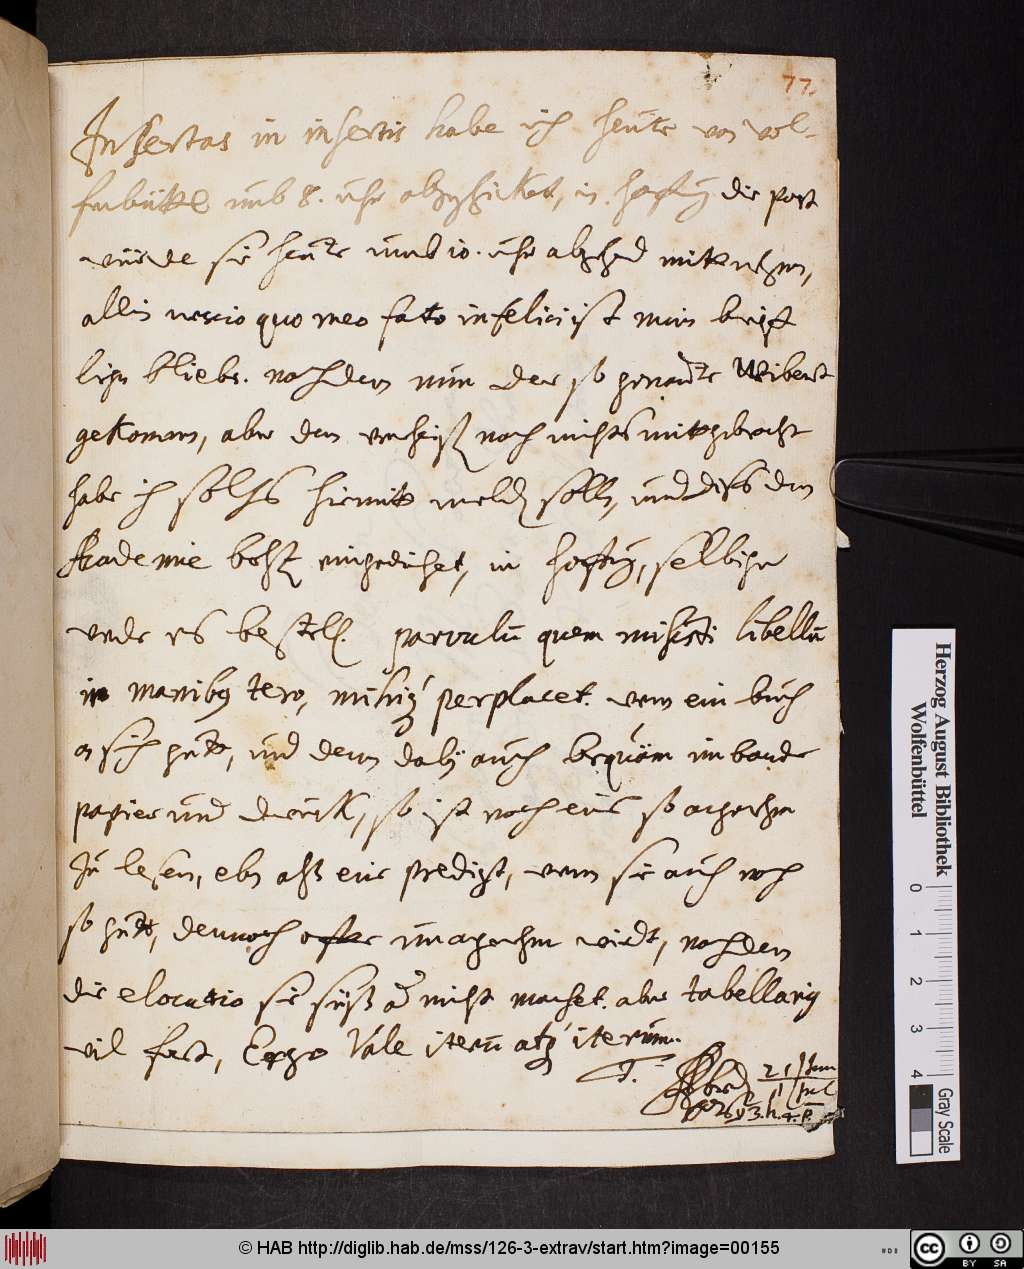 77.
Insertas in insertis habe ich heute von Wol-
fenbüttel umb 8. uhr abgeschicket, in hofnung die post
würde sie heute umb 10. uhr abgehend mitnehmen,
allein nescio quo meo fato infelici ist mein brief
liegen bliebe. nachdem nun der so genante Weibert
gekommen, aber dem verheiß nach nichts mitgebracht
habe ich solches hiermit melden sollen, und dises den
Akademie both eingereichet, in hofnung, selbiger
werde es bestellen. parvulū quem misisti libellū
in manibus tero, mihique perplacet. wen ein buch
an sich gutt, und denn dabey auch bequäm im bande
papier und druck, so ist noch eins so angenehm
zu lesen, eben alß eine predigt, wenn sie auch noch
so gutt, dennoch unangenehm wirdt, nachdem
die elocutio sie süß nicht machet. aber tabellarius
will fort, Ergo Vale iterū atque iterum.
T.
21 Jun
11 Jul
h. 4. p.
Herzog August Bibliothek
Wolfenbüttel
0 1 2 3 4
Gray Scale
© HAB http://diglib.hab.de/mss/126-3-extrav/start.htm?image=00155
HAB
cc BY SA